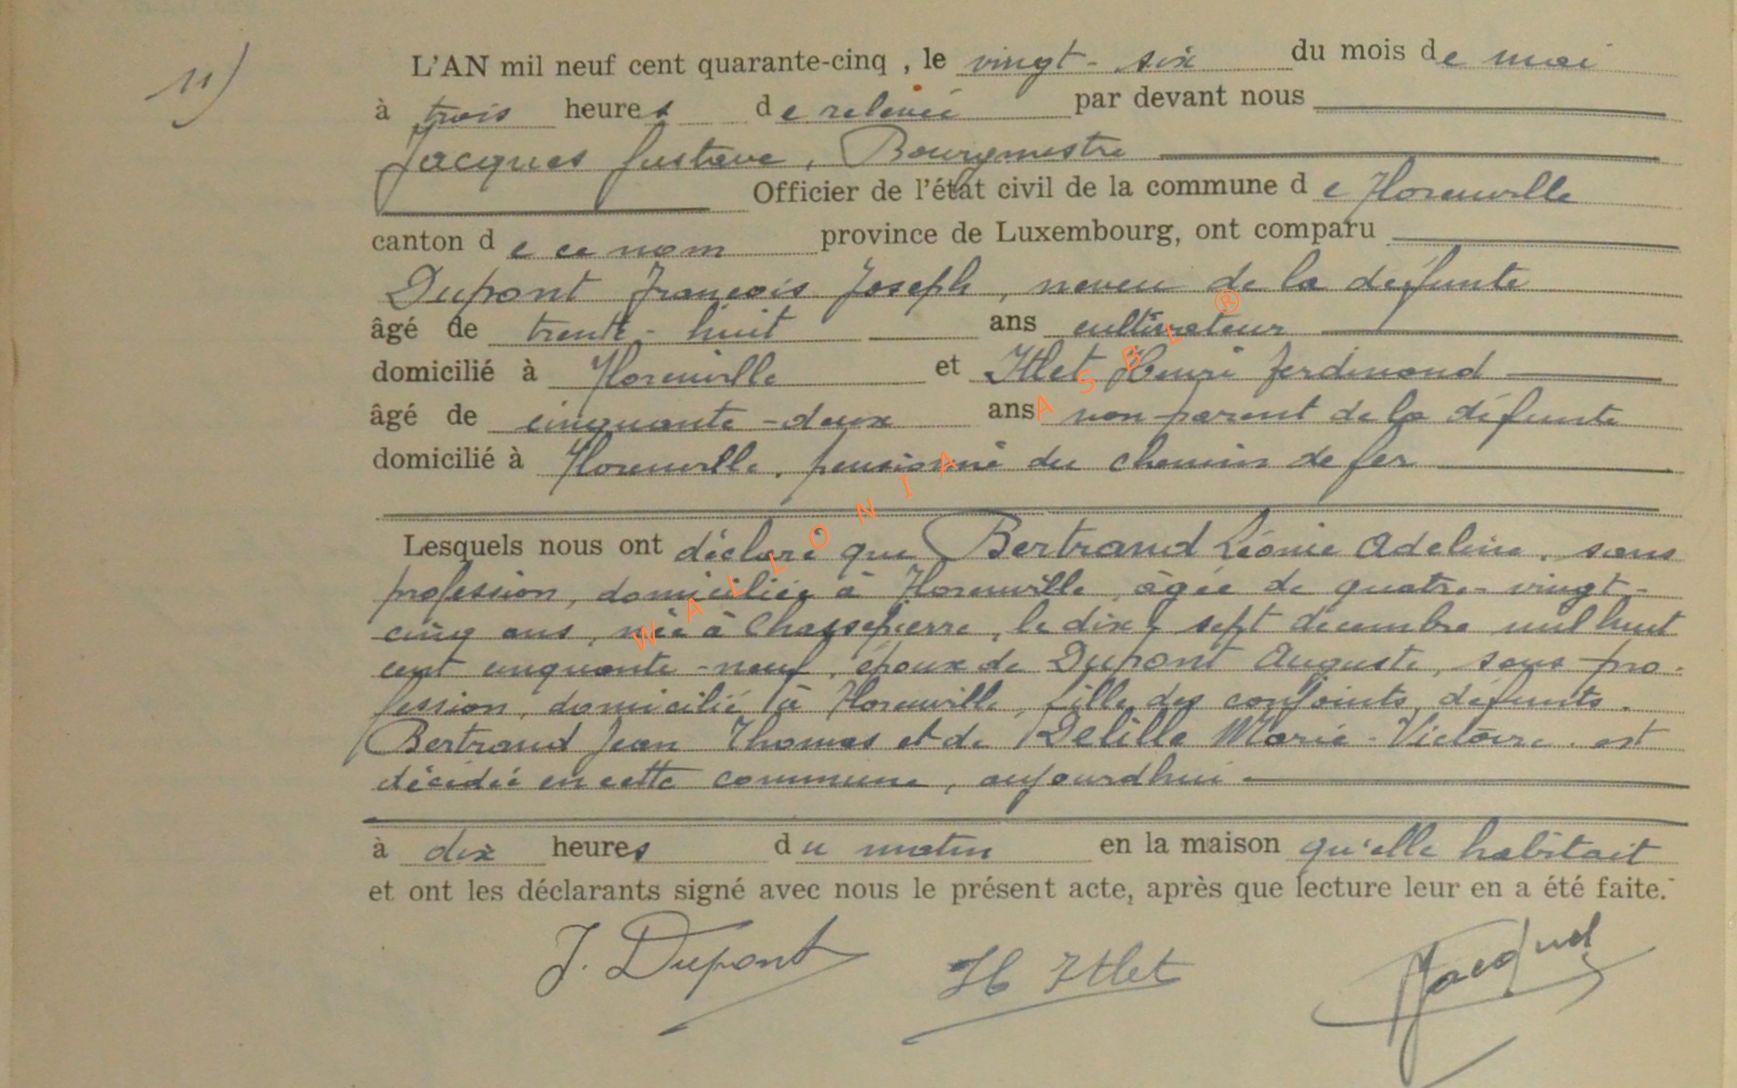 11)
L'AN mil neuf cent quarante-cinq , le vingt-six du mois de mai
à trois heures de relevée par devant nous
Jacques Gustave, Bourgmestre
Officier de l'état civil de la commune de Florenville
canton de ce nom province de Luxembourg, ont comparu
Dupont François Joseph, neveu de la défunte
âgé de trente-huit ans cultivateur
domicilié à Florenville et Itlet Henri Ferdinand
âgé de cinquante-deux ans non parent de la défunte
domicilié à Florenville, pensionné du chemin de fer
Lesquels nous ont déclaré que Bertrand Léonie Adeline, sans
profession, domiciliée à Florenville, âgée de quatre-vingt-
cinq ans, née à Chassepierre, le dix-sept décembre mil huit
cent cinquante-neuf, épouse de Dupont Auguste, sans pro-
fession, domicilié à Florenville, fille des conjoints, défunts.
Bertrand Jean Thomas et de Delille Marie-Victoire, est
décédée en cette commune, aujourdhui
à dix heures du matin en la maison qu'elle habitait
et ont les déclarants signé avec nous le présent acte, après que lecture leur en a été faite.
J. Dupont H Itlet Jacques
WALLONIA ASBL ®